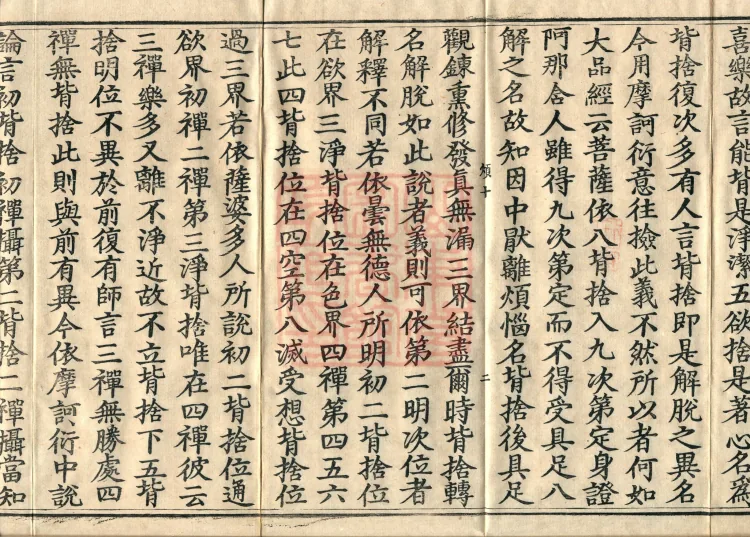 喜樂故言能背是淨潔五欲捨是著心名為
背捨復次多有人言背捨即是解脫之異名
今用摩訶衍意往撿此義不然所以者何如
大品經云菩薩依八背捨入九次第定身證
阿那含人雖得九次第定而不得受具足八
解之名故知因中猒離煩惱名背捨後具足
觀鍊熏修發真無漏三界結盡爾時背捨轉
名解脫如此說者義則可依第二明次位者
解釋不同若依曇無德人所明初二背捨位
在欲界三淨背捨位在色界四禪第四五六
七此四背捨位在四空第八滅受想背捨位
過三界若依薩婆多人所說初二背捨位通
欲界初禪二禪第三淨背捨唯在四禪彼云
三禪樂多又離不淨近故不立背捨下五背
捨明位不異於前復有師言三禪無勝處四
禪無背捨此則與前有異今依摩訶衍中說
論言初背捨初禪攝第二背捨二禪攝當知